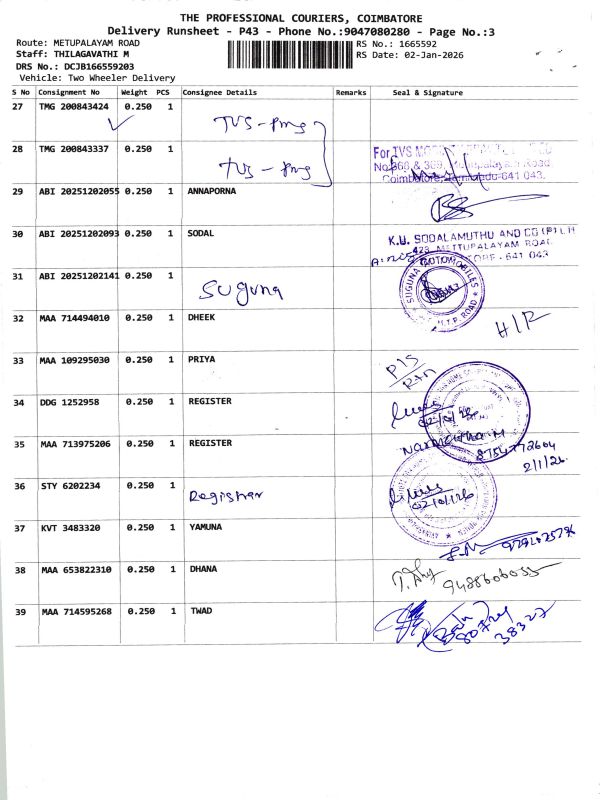 THE PROFESSIONAL COURIERS, COIMBATORE
Delivery Runsheet - P43 - Phone No.:9047080280 - Page No.:3
Route: METUPALAYAM ROAD
RS No.: 1665592
Staff: THILAGAVATHI M
RS Date: 02-Jan-2026
DRS No.: DCJB166559203
Vehicle: Two Wheeler Delivery
S No Consignment No Weight PCS Consignee Details Remarks Seal & Signature
27 TMG 200843424 0.250 1 TVS - pmg
28 TMG 200843337 0.250 1 TVS - pmg
For TVS
Coimbatore, 641 043.
29 ABI 20251202055 0.250 1 ANNAPORNA
30 ABI 20251202093 0.250 1 SODAL
K.U. SODALAMUTHU AND CO (P) LTD
423, METTUPALAYAM ROAD
641 043
31 ABI 20251202141 0.250 1 Suguna
SUGUNA AUTOMOBILES
M.T.P. ROAD
32 MAA 714494010 0.250 1 DHEEK
H/R
33 MAA 109295030 0.250 1 PRIYA
P/S
34 DDG 1252958 0.250 1 REGISTER
02/01/26
35 MAA 713975206 0.250 1 REGISTER
8754772604
2/1/26
36 STY 6202234 0.250 1 Registrar
02/01/26
37 KVT 3483320 0.250 1 YAMUNA
38 MAA 653822310 0.250 1 DHANA
9488606055
39 MAA 714595268 0.250 1 TWAD
38327